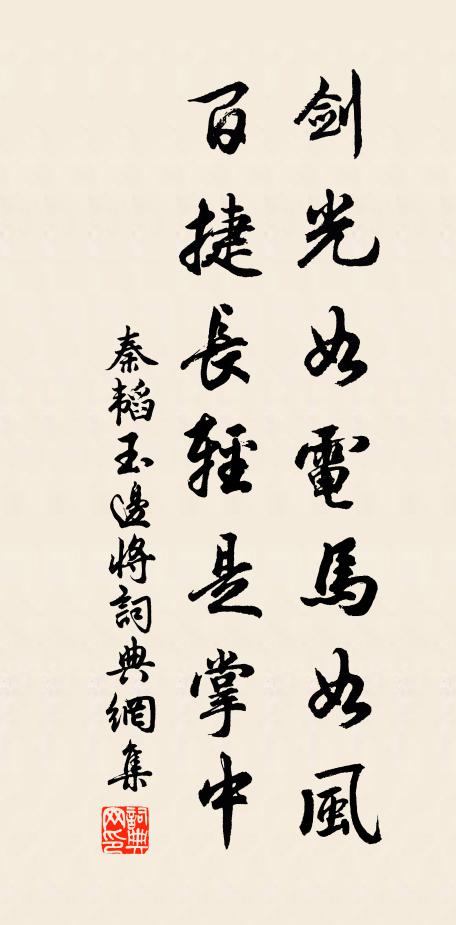 劍光如電馬如風
百捷長輕是掌中
秦韜玉邊將詞典網集
詞典網印